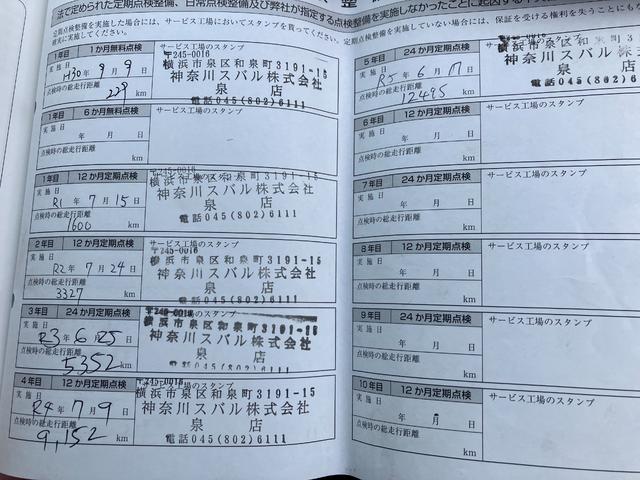 整
法で定められた定期点検整備、日常点検整備及び弊社が指定する点検整備を実施しなかったことに起因する
定期点検整備を実施した場合には、サービス工場においてスタンプを買ってください。
定期点検整備を実施していない場合には、保証を受ける権利を失うことにも
確実に実施してください。
1年目 1か月無料点検 サービス工場のスタンプ
実施日 H30年 9月 9日
点検時の総走行距離
229 km
〒245-0016
横浜市泉区和泉町3191-15
神奈川スバル株式会社
泉 店
電話045(802)6111
1年目 6か月無料点検 サービス工場のスタンプ
実施日 年 月 日
点検時の総走行距離
km
1年目 12か月定期点検 サービス工場のスタンプ
実施日 R1年 7月 15日
点検時の総走行距離
1600 km
〒245-0016
横浜市泉区和泉町3191-15
神奈川スバル株式会社
泉 店
電話045(802)6111
2年目 12か月定期点検 サービス工場のスタンプ
実施日 R2年 7月 24日
点検時の総走行距離
3327 km
〒245-0016
横浜市泉区和泉町3191-15
神奈川スバル株式会社
泉 店
電話045(802)6111
3年目 24か月定期点検 サービス工場のスタンプ
実施日 R3年 6月 25日
点検時の総走行距離
5352 km
〒245-0016
横浜市泉区和泉町3191-15
神奈川スバル株式会社
泉 店
電話045(802)6111
4年目 12か月定期点検 サービス工場のスタンプ
実施日 R4年 7月 9日
点検時の総走行距離
9,152 km
〒245-0016
横浜市泉区和泉町3191-15
神奈川スバル株式会社
泉 店
電話045(802)6111
5年目 24か月定期点検 サービス工場のスタンプ
実施日 R5年 6月 17日
点検時の総走行距離
12495 km
横浜市泉区和泉町3191
神奈川スバル株式会
泉
電話045(802)6
6年目 12か月定期点検 サービス工場のスタンプ
実施日 年 月 日
点検時の総走行距離
km
7年目 24か月定期点検 サービス工場のスタンプ
実施日 年 月 日
点検時の総走行距離
km
8年目 12か月定期点検 サービス工場のスタンプ
実施日 年 月 日
点検時の総走行距離
km
9年目 24か月定期点検 サービス工場のスタンプ
実施日 年 月 日
点検時の総走行距離
km
10年目 12か月定期点検 サービス工場のスタンプ
実施日 年 月 日
点検時の総走行距離
km